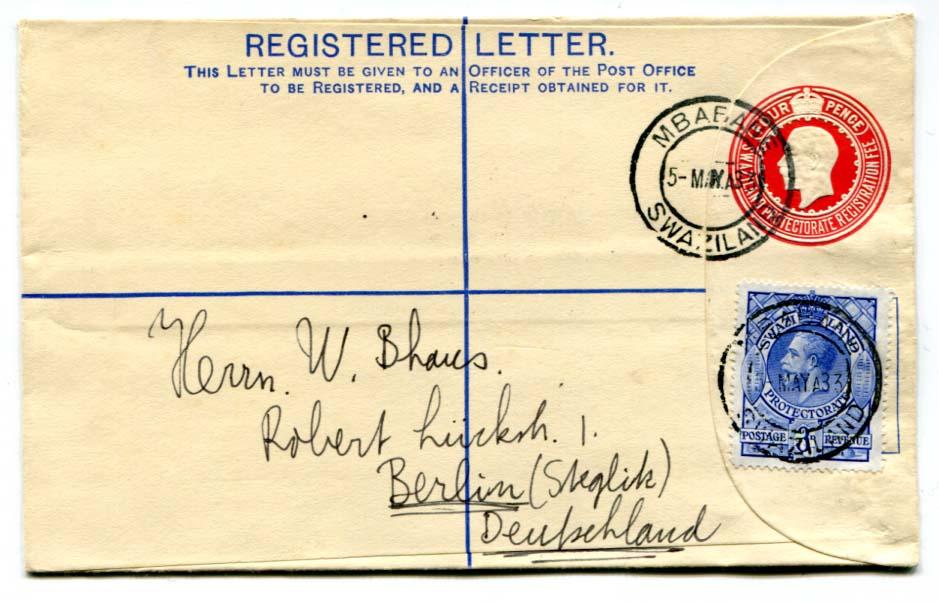 REGISTERED LETTER.
THIS LETTER MUST BE GIVEN TO AN OFFICER OF THE POST OFFICE
TO BE REGISTERED, AND A RECEIPT OBTAINED FOR IT.
FOUR PENCE
SWAZILAND PROTECTORATE REGISTRATION FEE
MBABANE
5-MAY
SWAZILAND
SWAZILAND
MAY 33
PROTECTORATE
POSTAGE 3D REVENUE
Herrn. W. Bhaus.
Robert Lückstr. 1.
Berlin (Steglitz)
Deutschland